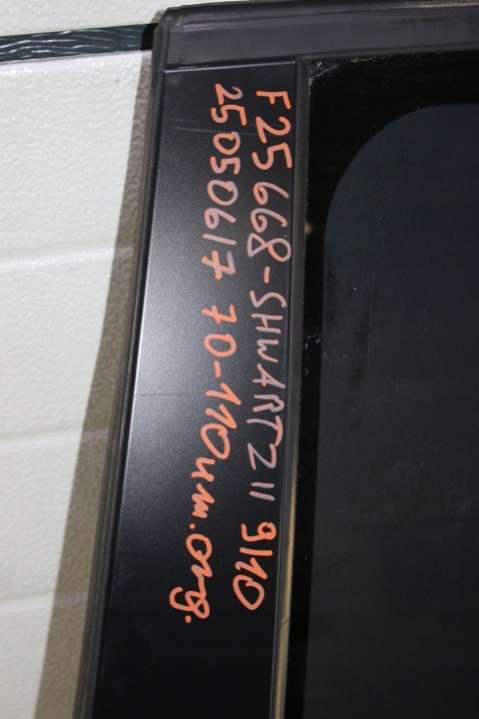 F25 668-SHWARTZ II 9/10
25050617 70-110um.org.